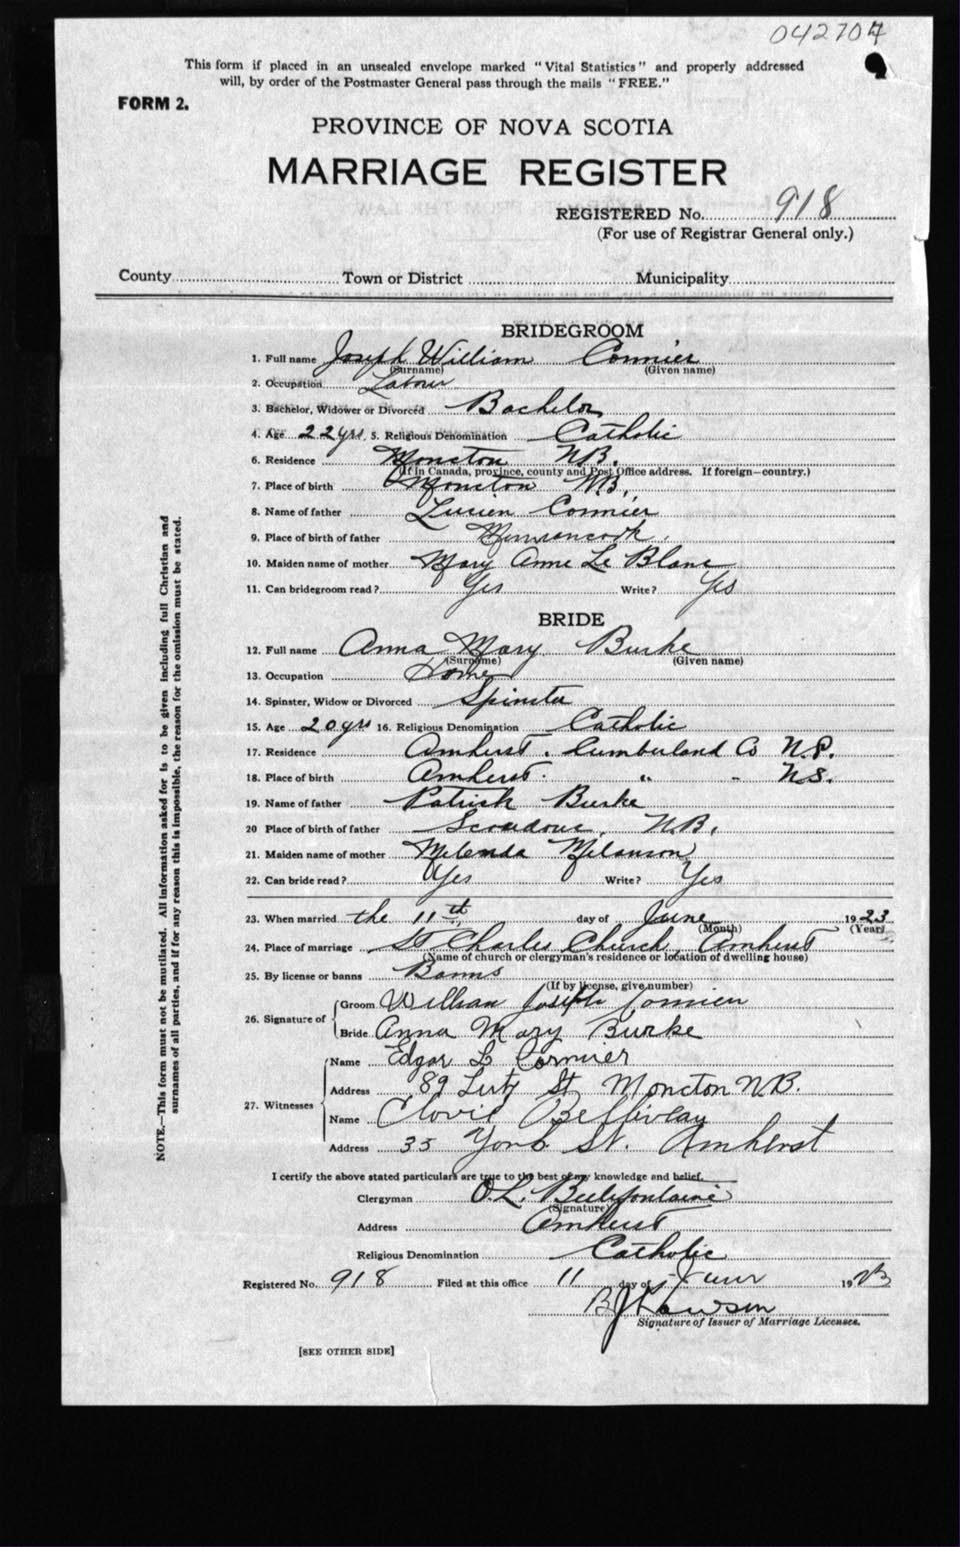 042704
This form if placed in an unsealed envelope marked "Vital Statistics" and properly addressed
will, by order of the Postmaster General pass through the mails "FREE."
FORM 2.
PROVINCE OF NOVA SCOTIA
MARRIAGE REGISTER
REGISTERED No. 918
(For use of Registrar General only.)
County Town or District Municipality
BRIDEGROOM
1. Full name Joseph William Cormier
(Surname) (Given name)
2. Occupation Labour
3. Bachelor, Widower or Divorced Bachelor
4. Age 22 yrs. 5. Religious Denomination Catholic
6. Residence Moncton N.B.
(If in Canada, province, county and Post Office address. If foreign—country.)
7. Place of birth Moncton N.B.
8. Name of father Lucien Cormier
9. Place of birth of father
10. Maiden name of mother Mary Anne Le Blanc
11. Can bridegroom read? Yes Write? Yes
BRIDE
12. Full name Anna Mary Burke
(Surname) (Given name)
13. Occupation Home
14. Spinster, Widow or Divorced Spinster
15. Age 20 yrs 16. Religious Denomination Catholic
17. Residence Amherst. Cumberland Co N.S.
18. Place of birth Amherst. " - N.S.
19. Name of father Patrick Burke
20 Place of birth of father Scoudouc, N.B.
21. Maiden name of mother Melanson
22. Can bride read? Yes Write? Yes
23. When married the 11th day of June 1923
(Month) (Year)
24. Place of marriage St Charles Church, Amherst
(Name of church or clergyman's residence or location of dwelling house)
25. By license or banns Banns
(If by license, give number)
26. Signature of
Groom William Joseph Cormier
Bride Anna Mary Burke
27. Witnesses
Name Edgar L Cormier
Address 89 St Moncton N.B.
Name Clovis
Address 35 York St. Amherst
I certify the above stated particulars are true to the best of my knowledge and belief.
Clergyman
(Signature)
Address Amherst
Religious Denomination Catholic
Registered No. 918 Filed at this office 11 day of June 1923
B J Lawson
Signature of Issuer of Marriage Licenses.
[SEE OTHER SIDE]
NOTE.—This form must not be mutilated. All information asked for is to be given including full Christian and
surnames of all parties, and if for any reason this is impossible, the reason for the omission must be stated.